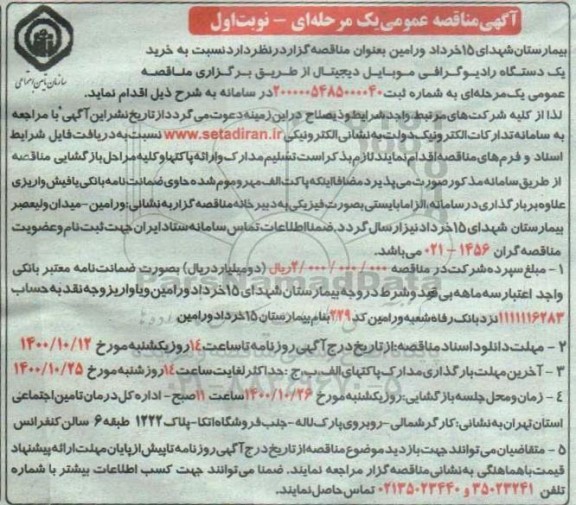 آگهی مناقصه عمومی یک مرحله‌ای - نوبت اول
سازمان تأمین اجتماعی
بیمارستان شهدای ۱۵ خرداد ورامین بعنوان مناقصه گزار در نظر دارد نسبت به خرید
یک دستگاه رادیوگرافی موبایل دیجیتال از طریق برگزاری مناقصه
عمومی یک مرحله‌ای به شماره ثبت ۲۰۰۰۰۰۵۴۸۵۰۰۰۰۴۰ در سامانه به شرح ذیل اقدام نماید.
لذا از کلیه شرکت‌های مرتبط واجد شرایط و ذیصلاح در این زمینه دعوت می‌گردد از تاریخ نشر این آگهی با مراجعه
به سامانه تدارکات الکترونیک دولت به نشانی الکترونیکی www.setadiran.ir نسبت به دریافت فایل شرایط
اسناد و فرم‌های مناقصه اقدام نمایند لازم بذکر است تسلیم مدارک و ارائه پاکتها و کلیه مراحل بازگشایی مناقصه
از طریق سامانه مذکور صورت می‌پذیرد مضافا اینکه پاکت الف مهر و موم شده حاوی ضمانت نامه بانکی یا فیش واریزی
علاوه بر بارگذاری در سامانه، الزاما بایستی بصورت فیزیکی به دبیرخانه مناقصه گزار به نشانی: ورامین-میدان ولیعصر
بیمارستان شهدای ۱۵ خرداد نیز ارسال گردد. ضمنا اطلاعات تماس سامانه ستاد ایران جهت ثبت نام و عضویت
مناقصه گران ۱۴۵۶ - ۰۲۱ می‌باشد.
۱ - مبلغ سپرده شرکت در مناقصه ۲/۰۰۰/۰۰۰/۰۰۰ ریال (دو میلیارد ریال) بصورت ضمانت‌نامه معتبر بانکی
واجد اعتبار سه ماهه بی قید و شرط در وجه بیمارستان شهدای ۱۵ خرداد ورامین و یا واریز وجه نقد به حساب
۱۱۱۱۱۱۶۲۸۳ نزد بانک رفاه شعبه ورامین کد ۲۲۹ بنام بیمارستان ۱۵ خرداد ورامین
۲ - مهلت دانلود اسناد مناقصه: از تاریخ درج آگهی روزنامه تا ساعت ۱۴ روز یکشنبه مورخ ۱۴۰۰/۱۰/۱۲
۳ - آخرین مهلت بارگذاری مدارک پاکتهای الف، ب، ج: حداکثر لغایت ساعت ۱۴ روز شنبه مورخ ۱۴۰۰/۱۰/۲۵
۴ - زمان و محل جلسه بازگشایی: روز یکشنبه مورخ ۱۴۰۰/۱۰/۲۶ ساعت ۱۱ صبح - اداره کل درمان تامین اجتماعی
استان تهران به نشانی: کارگر شمالی-روبروی پارک لاله-جنب فروشگاه اتکا-پلاک ۱۲۲۲ طبقه ۶ سالن کنفرانس
۵ - متقاضیان می‌توانند جهت بازدید موضوع مناقصه از تاریخ درج آگهی روزنامه تا پیش از پایان مهلت ارائه پیشنهاد
قیمت با هماهنگی به نشانی مناقصه گزار مراجعه نمایند. ضمنا می‌توانند جهت کسب اطلاعات بیشتر با شماره
تلفن ۳۵۰۲۳۲۴۱ و ۰۲۱۳۵۰۲۳۴۴۰ تماس حاصل نمایند.